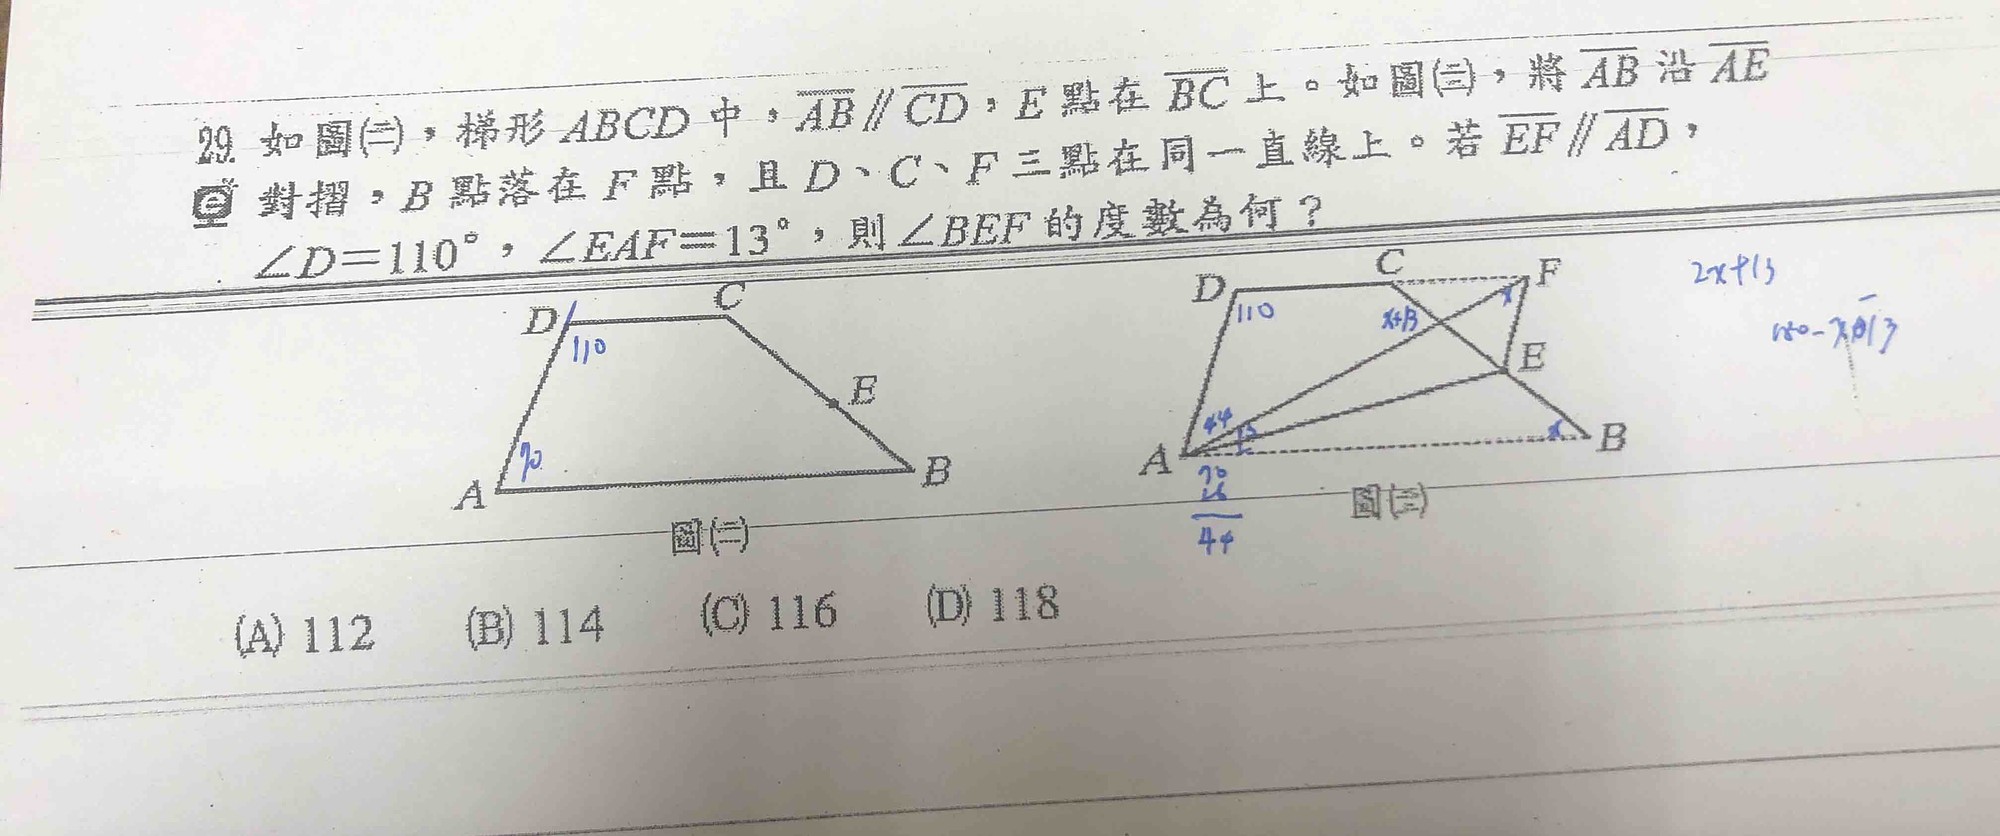 29. 如圖㈡，梯形 ABCD 中，AB // CD，E 點在 BC 上。如圖㈢，將 AB 沿 AE
對摺，B 點落在 F 點，且 D、C、F 三點在同一直線上。若 EF // AD，
∠D＝110°，∠EAF＝13°，則∠BEF 的度數為何？
D C 110 E 70 A B
圖㈡
D C F 110 x+13 x E 44 13 x A B
70
26
44
圖㈢
2x+13
(A) 112 (B) 114 (C) 116 (D) 118